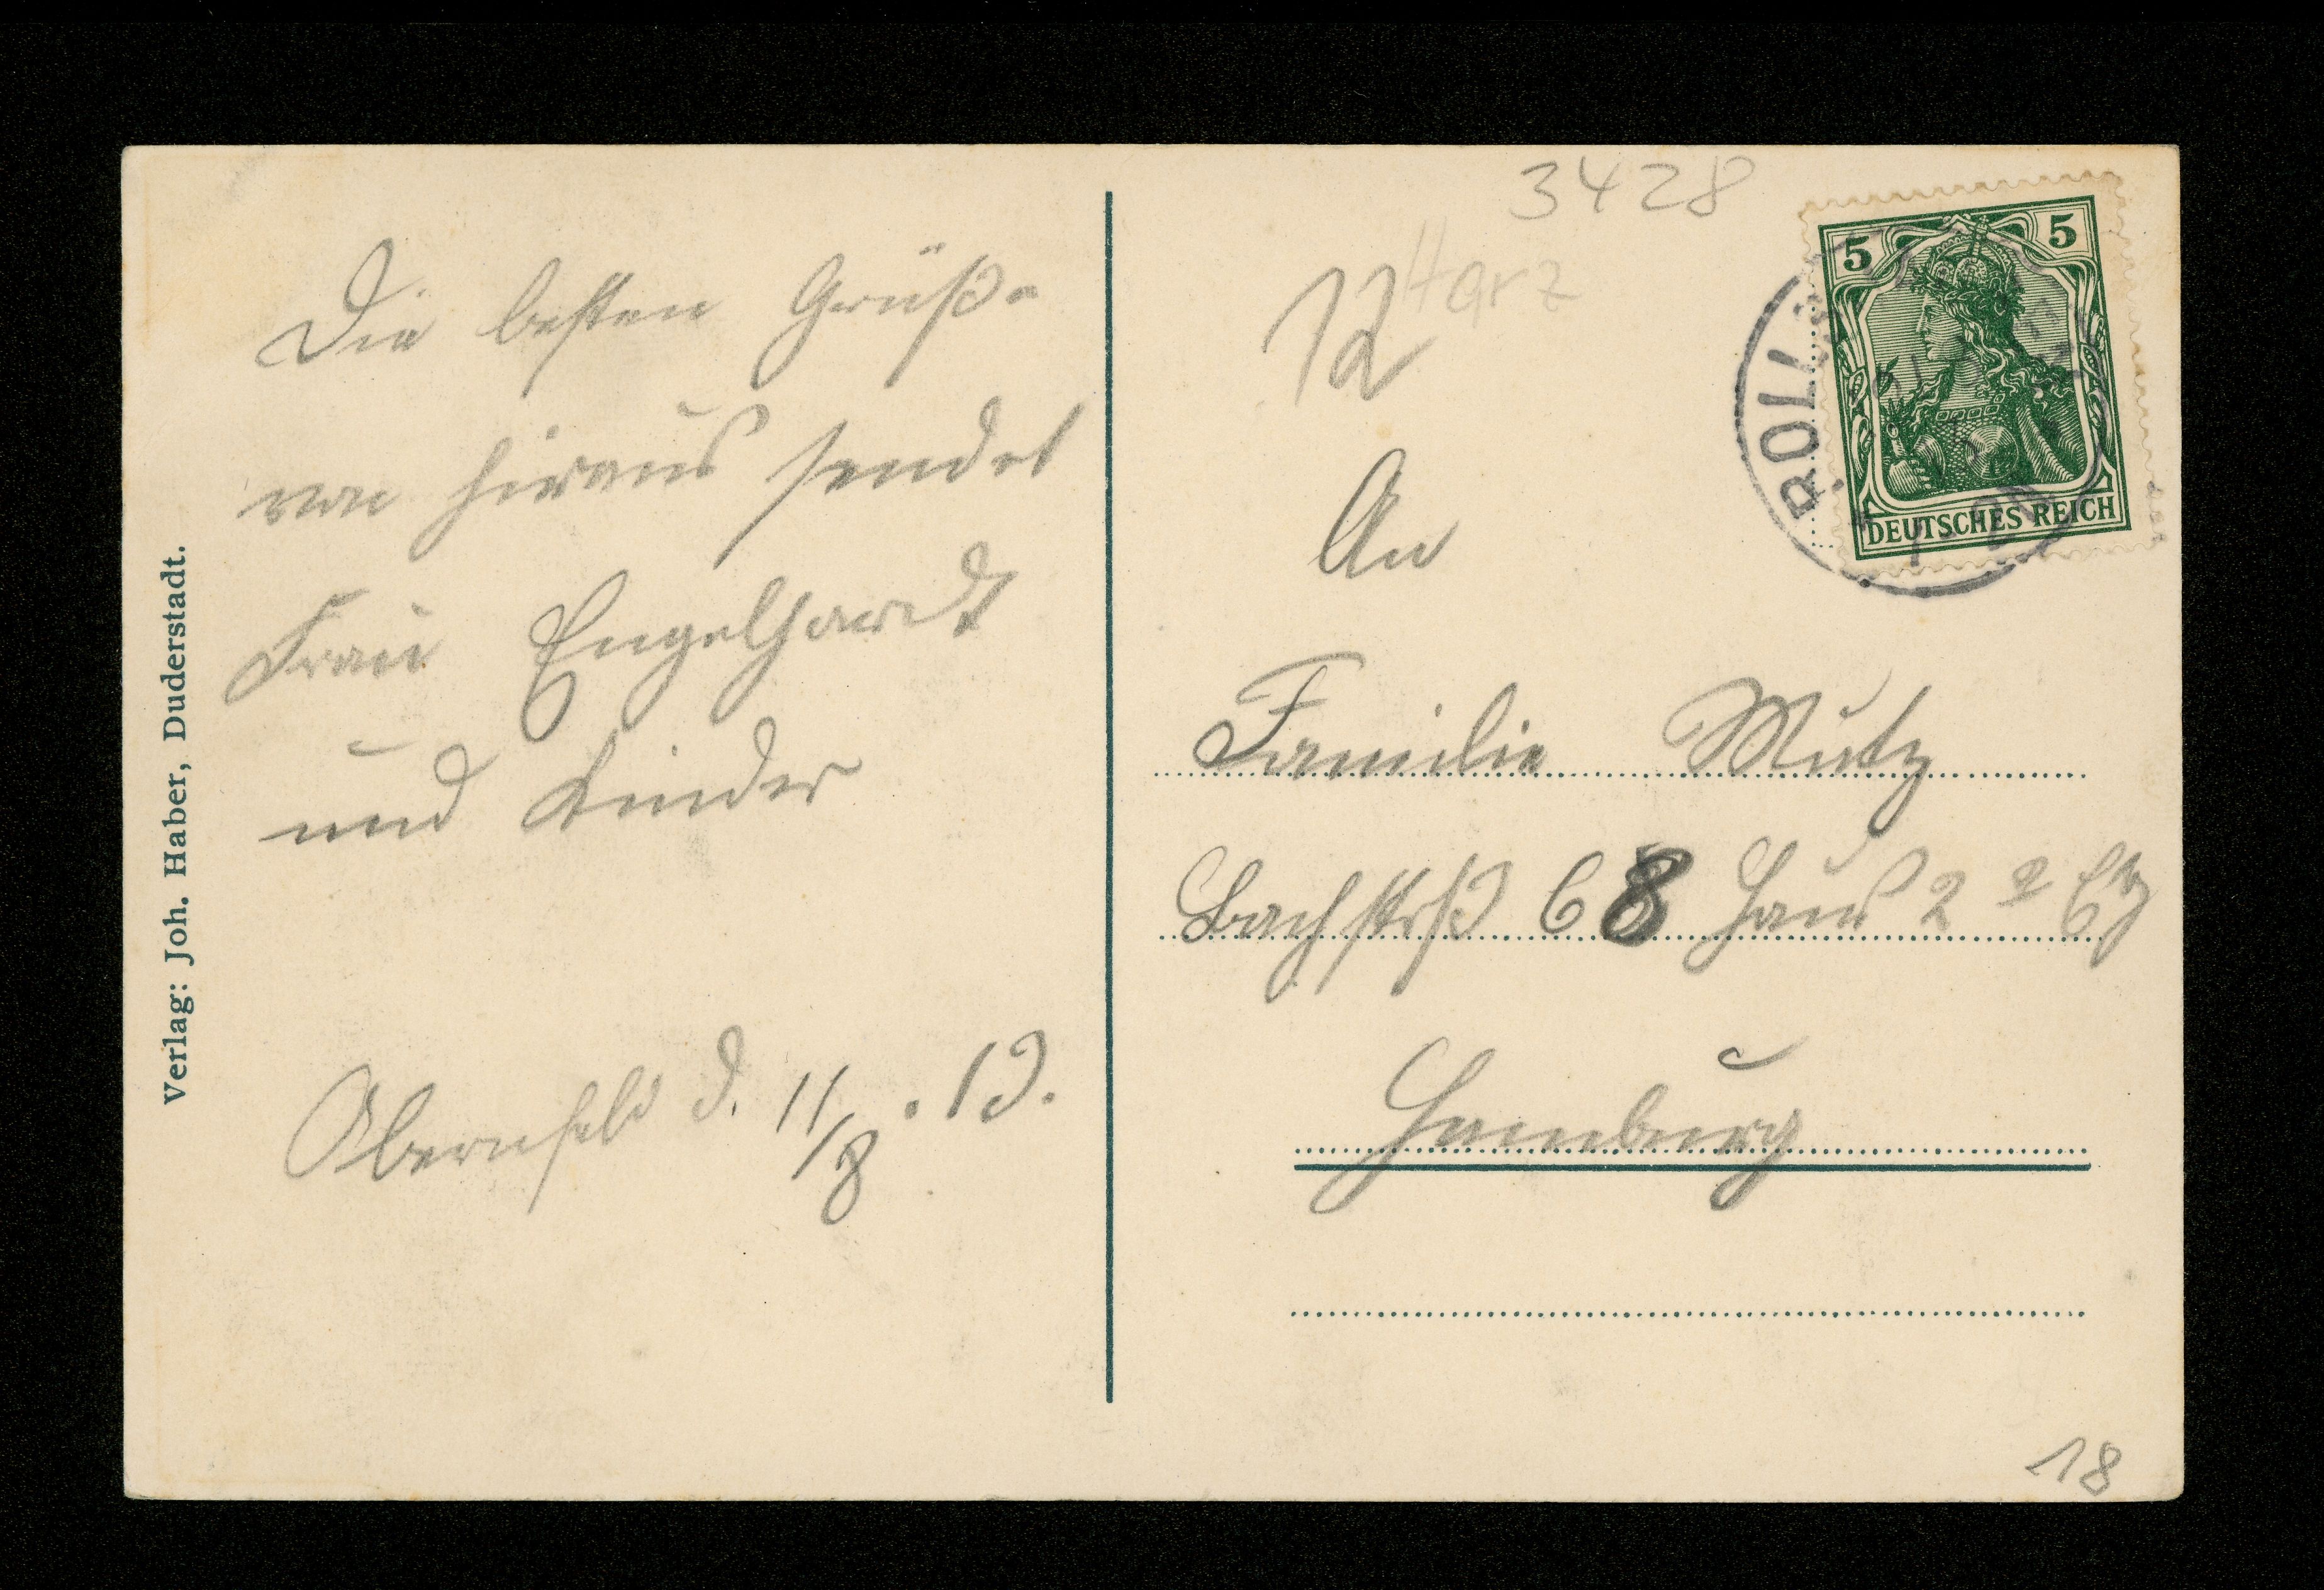 Die besten Grüße
von hiraus sendet
Frau Engelhardt
und Kinder
Obernfeld d. 11/8. 13.
Verlag: Joh. Haber, Duderstadt.
3428
12 Harz
5 5
DEUTSCHES REICH
ROLL
An
Familie Mutz
Bachstrß 68 Haus 2 2 Etg
Hamburg
18